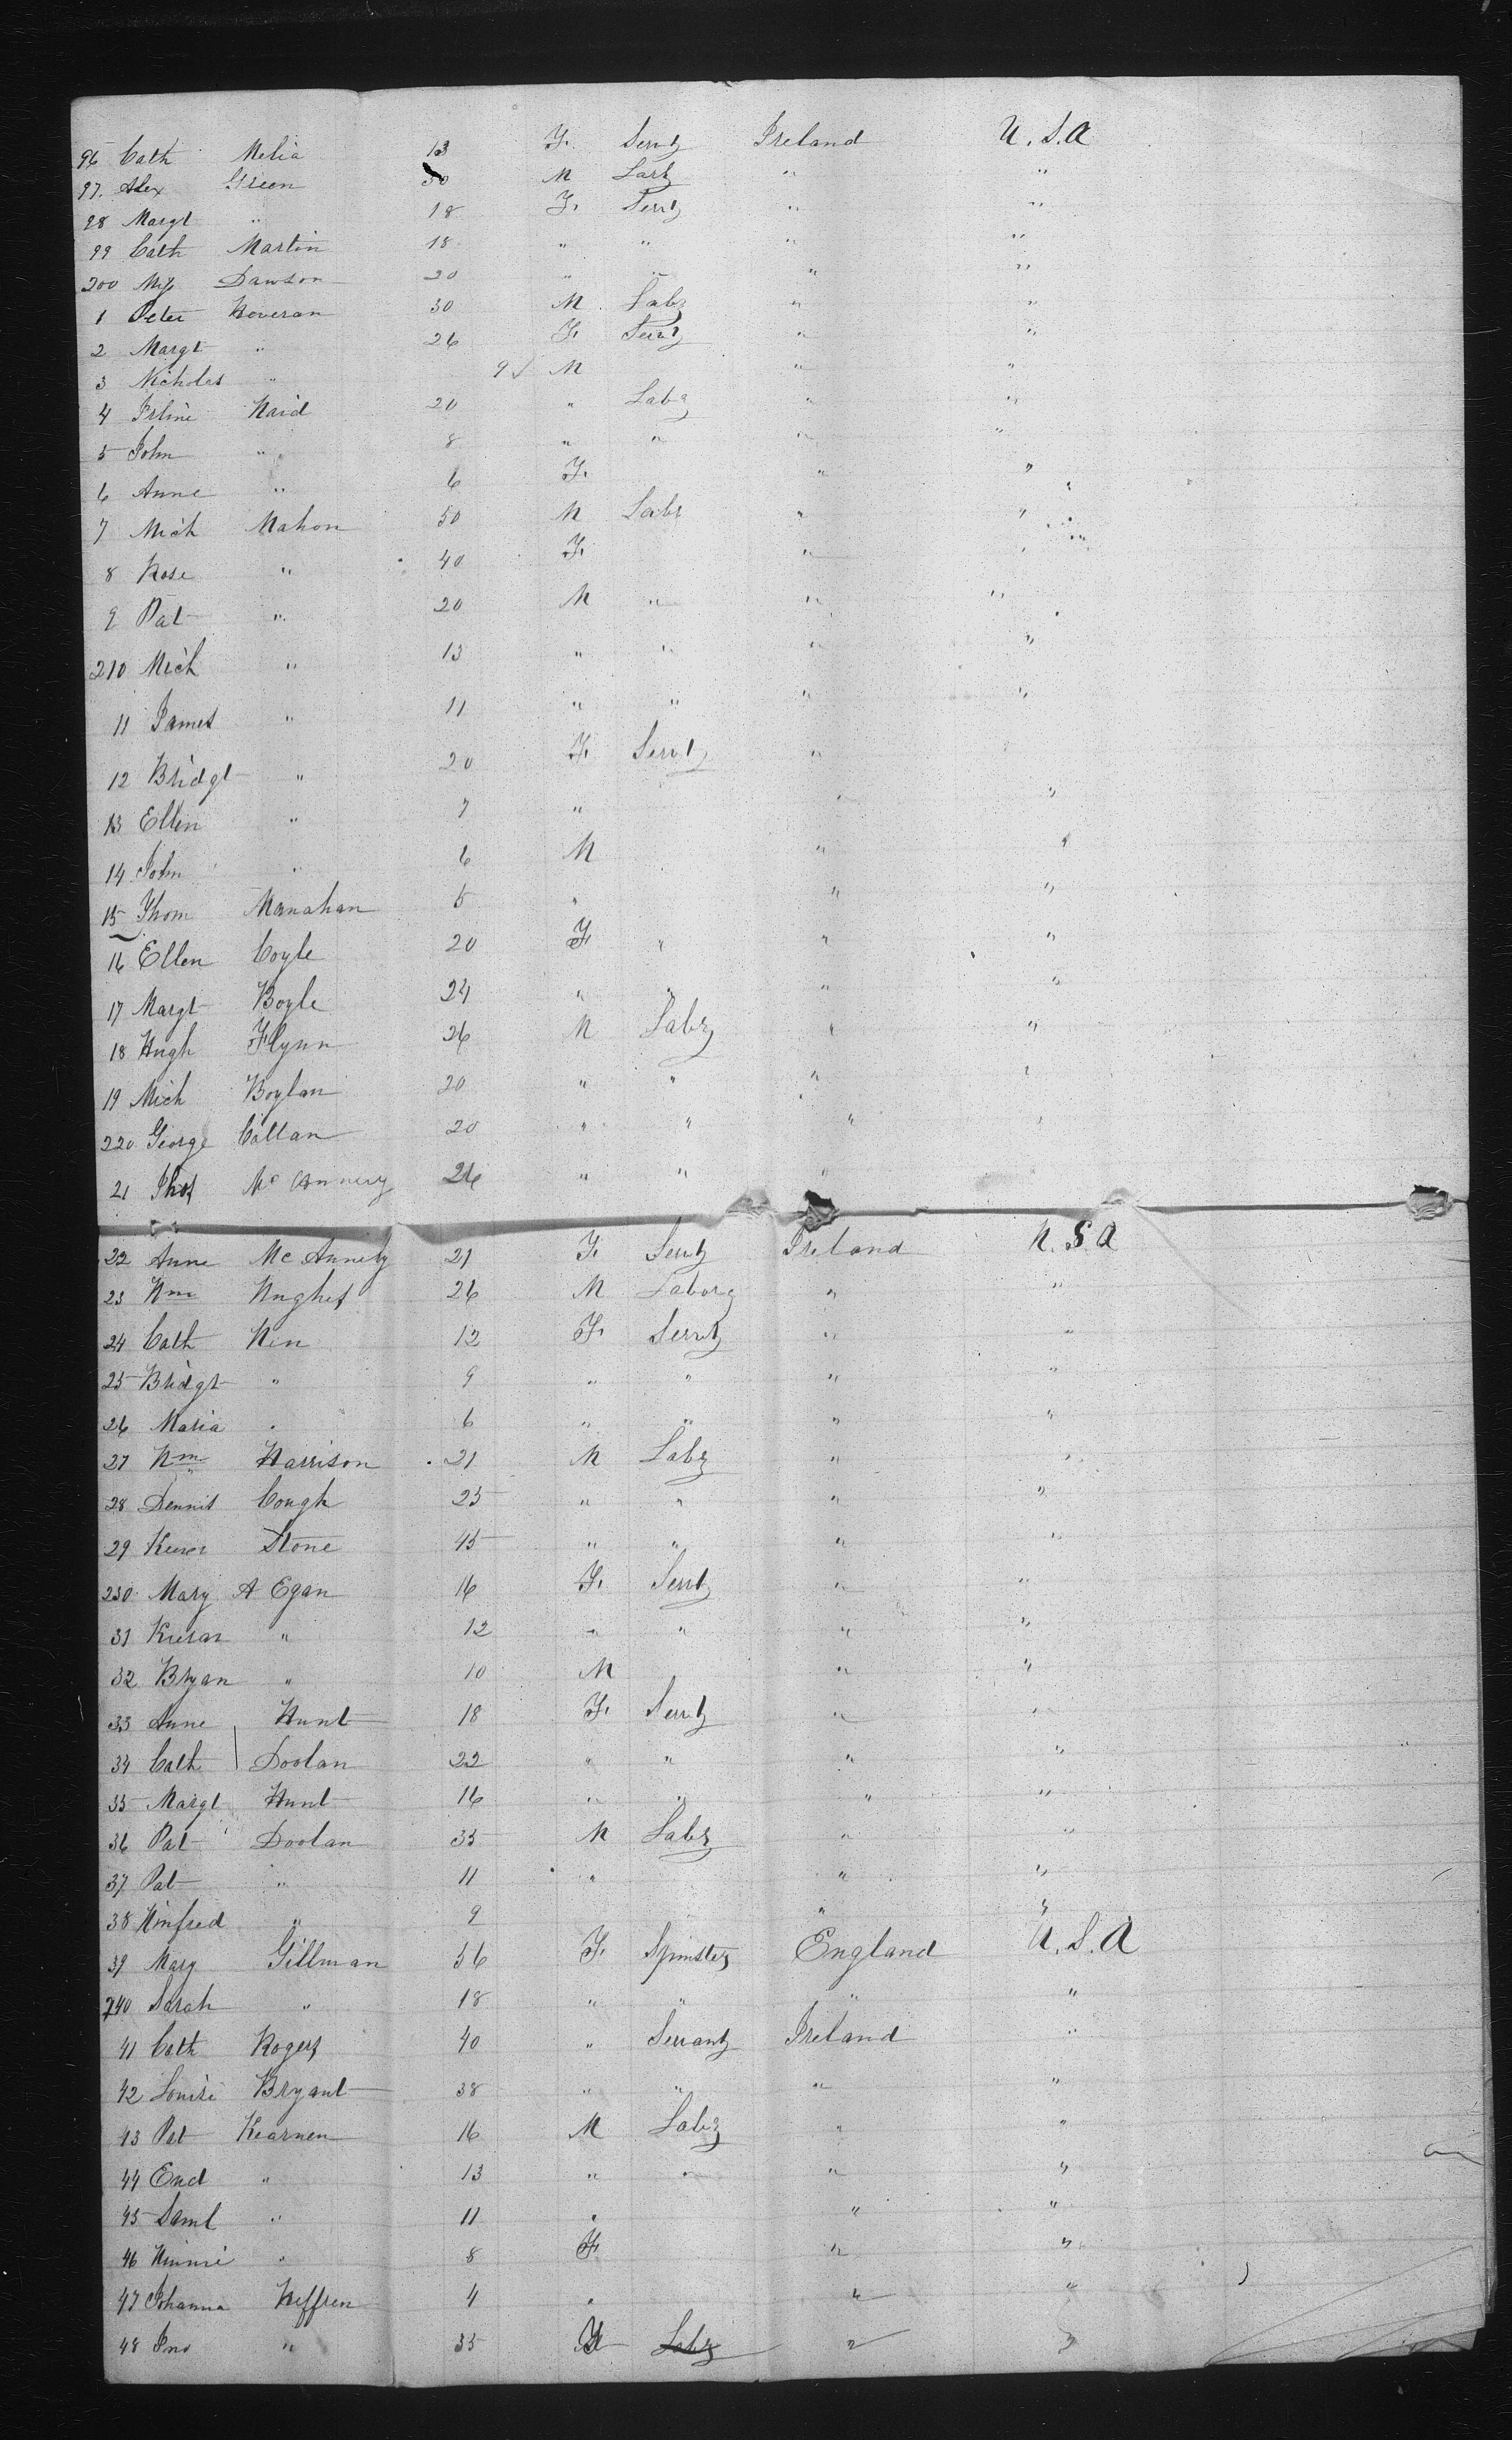 96 Cath Melia 13 F. Servt Ireland U.S.A
97. Alex Green 30 M Labr " "
98 Margt " 18 F. Servt " "
99 Cath Martin 18 " " " "
200 My Dawson 20 " " " "
1 Peter Hoveran 30 M Labr " "
2 Margt " 26 F. Servt " "
3 Nicholas " 9 M " "
4 Naid 20 " Labr " "
5 John " 8 " " " "
6 Anne " 6 F. " "
7 Mich Mahon 50 M Labr " "
8 Rose " 40 F. " "
9 Pat " 20 M " " "
210 Mich " 13 " " " "
11 James " 11 " " " "
12 Bridgt " 20 F. Servt "
13 Ellen " 7 " " "
14 John " 6 M " "
15 Thom Manahan 5 " " "
16 Ellen Coyle 20 F. " " "
17 Margt Boyle 24 " " " "
18 Hugh Flynn 26 M Labr " "
19 Mich Boylan 20 " " " "
220 George Callan 20 " " " "
21 Thos Mc Annery 26 " " "
22 Anne Mc Annely 21 F. Servt Ireland U.S.A
23 Wm Hughes 26 M Labor " "
24 Cath Ken 12 F. Servt " "
25 Bridgt " 9 " " " "
26 Maria " 6 " " " "
27 Wm Harrison 21 M Labr " "
28 Dennis Cough 25 " " " "
29 Stone 45 " " " "
230 Mary A Egan 16 F. Servt " "
31 Kieran " 12 " " " "
32 Bryan " 10 M " "
33 Anne Hunt 18 F. Servt " "
34 Cath Doolan 22 " " " "
35 Margt Hunt 16 " " " "
36 Pat Doolan 35 M Labr " "
37 Pat " 11 " " "
38 Winfred " 9 " "
39 Mary Gillman 56 F. Spinster England U.S.A
240 Sarah " 18 " " " "
41 Cath Rogers 40 " Servant Ireland "
42 Louisi Bryant 38 " " " "
43 Pat Kearnen 16 M Labr " "
44 End " 13 " " " "
45 Saml " 11 " " "
46 Winnie " 8 F " "
47 Johanna Heffren 4 " " "
48 Jno " 35 Labr " "